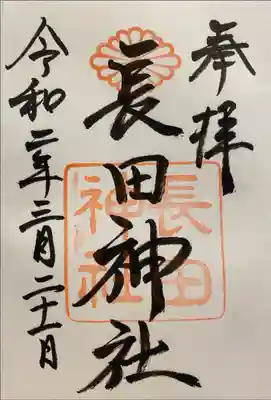 奉拝
長田神社
長田神社
令和二年三月二十一日